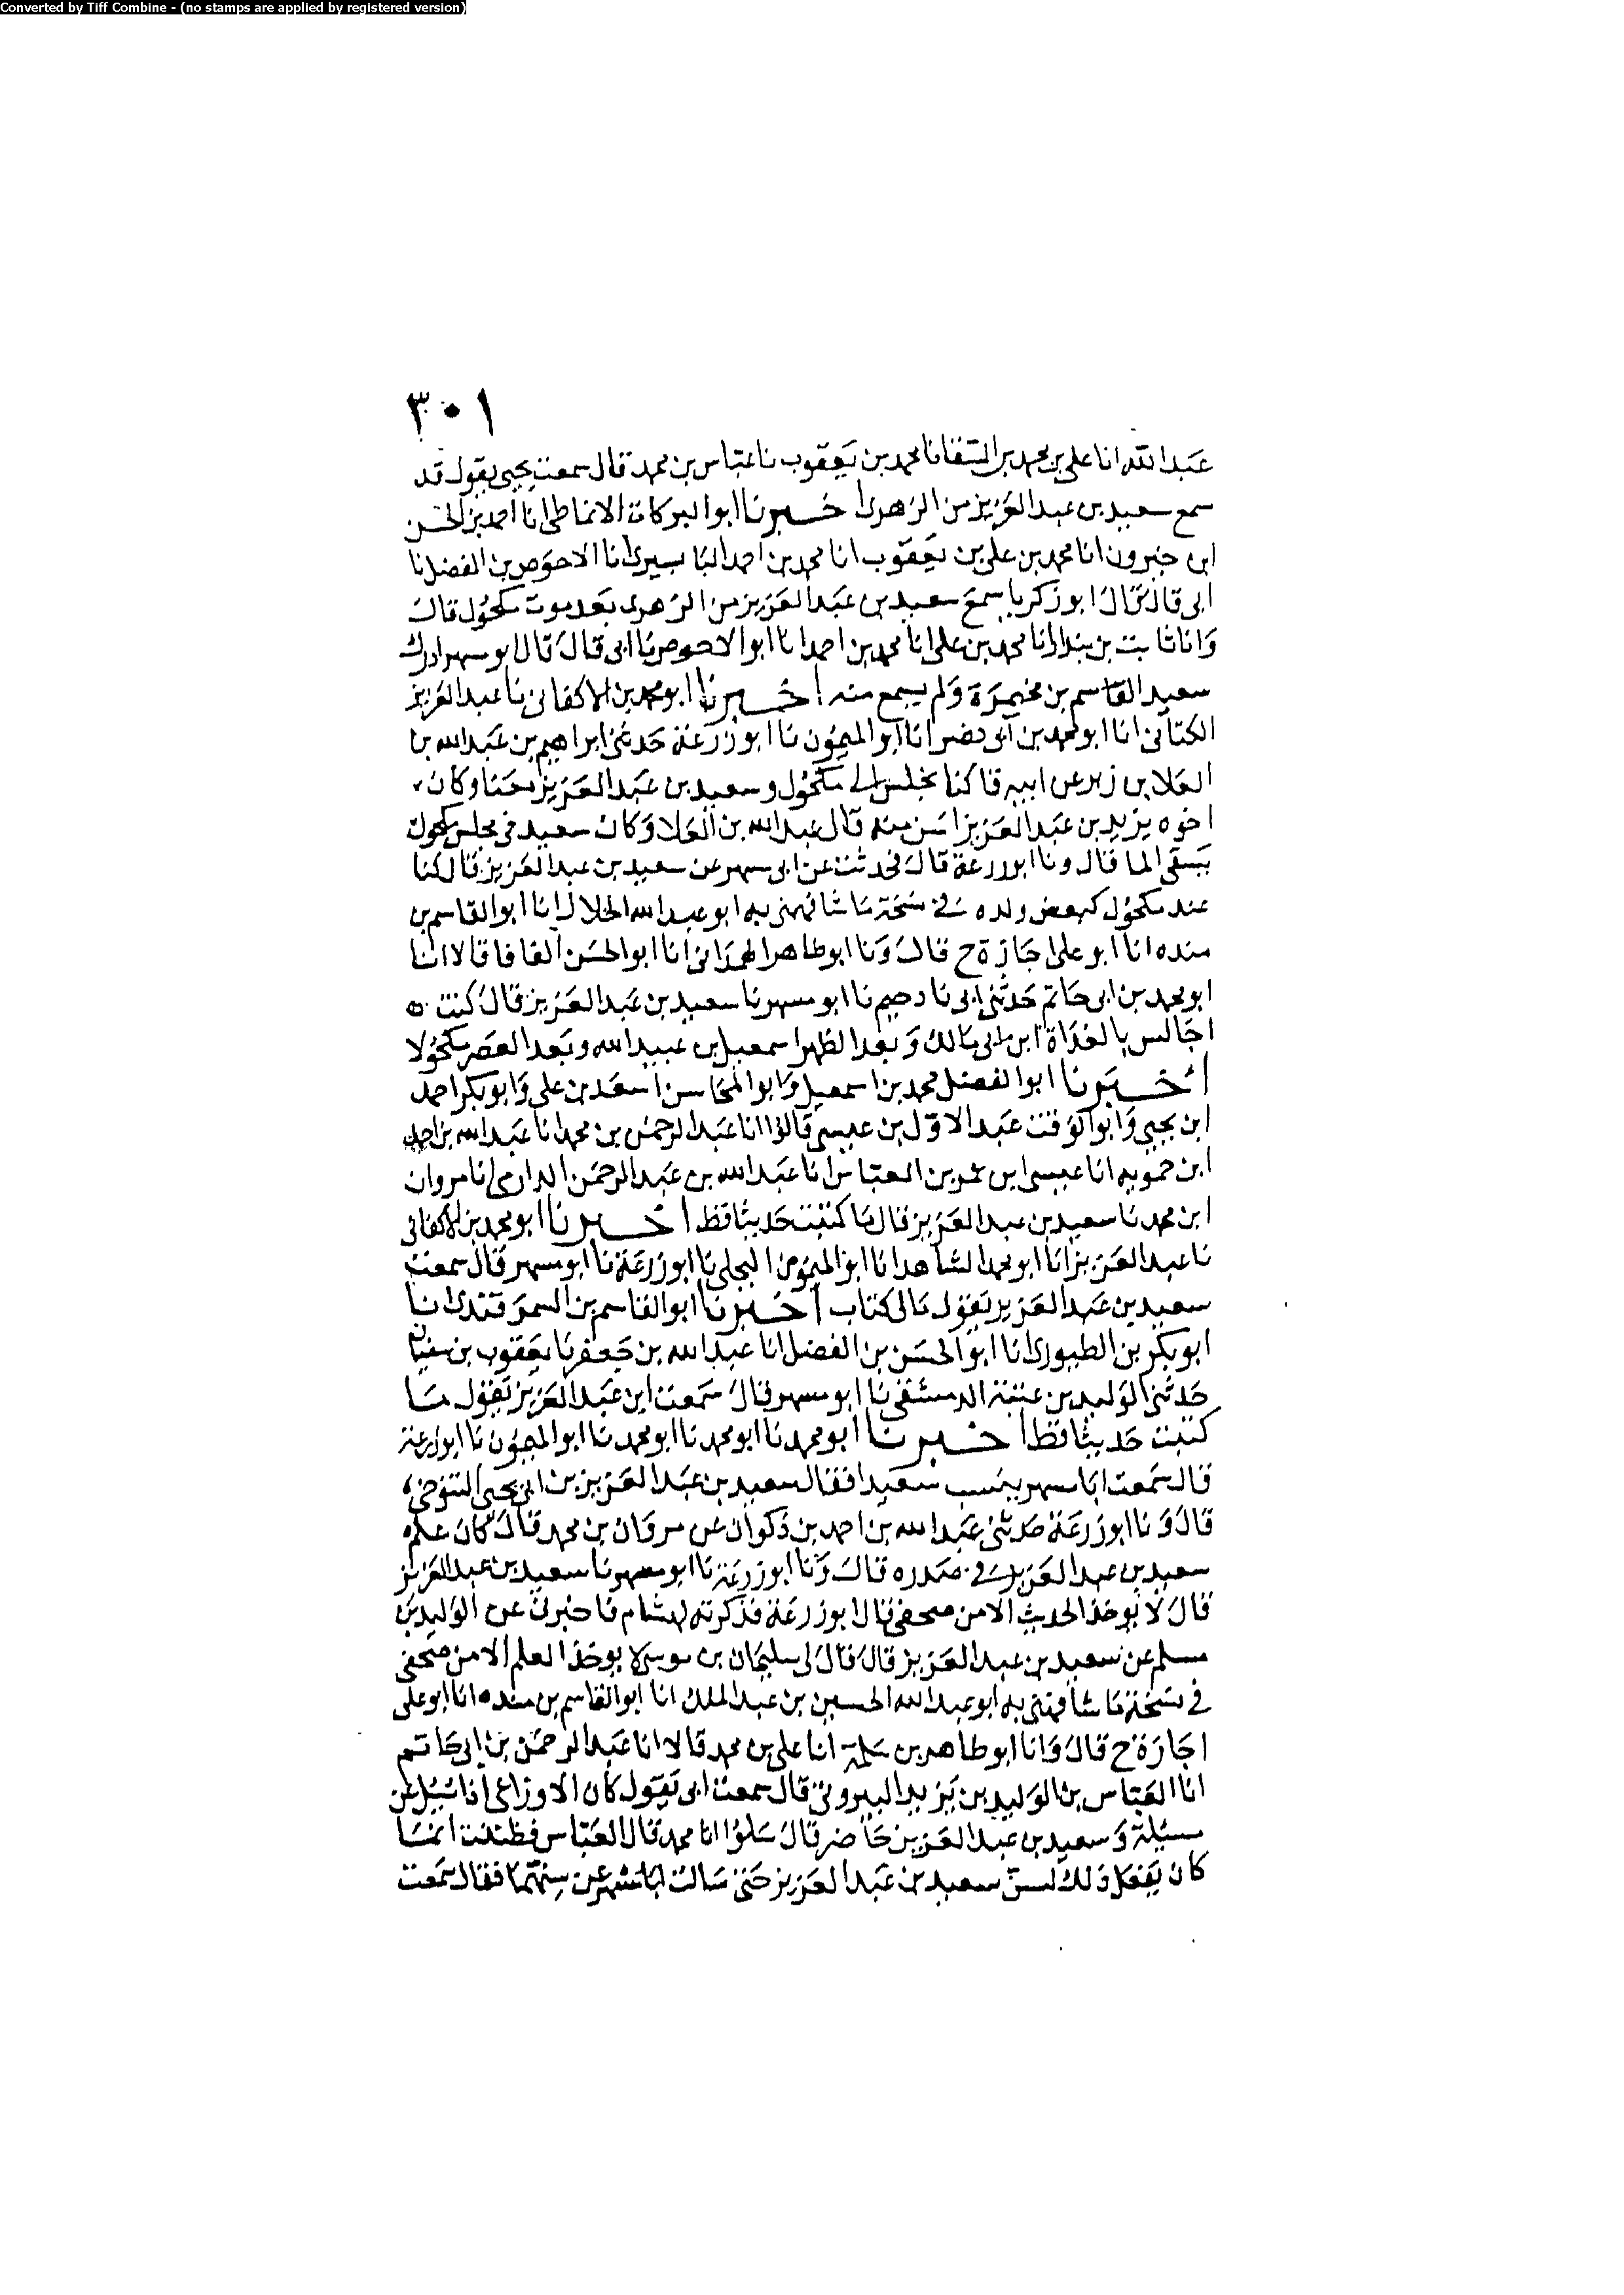 Converted by Tiff Combine - (no stamps are applied by registered version)
٣٠١
عبد الله انا علي بن محمد بن السقا نا محمد بن يعقوب نا عباس بن محمد قال سمعت يحيى يقول قد
سمع سعيد بن عبد العزيز من الزهري اخبرنا ابو البركات الانماطي انا احمد بن الحسن
ابن خيرون انا محمد بن علي بن يعقوب انا محمد بن احمد البابسيري انا الاحوص بن الفضل نا
ابي قال قال ابو زكريا سمع سعيد بن عبد العزيز من الزهري بعد موت مكحول قال
وانا ثابت بن بندار انا محمد بن علي انا محمد بن احمد انا ابو الاحوص نا ابي قال قال ابو مسهر ادرك
سعيد القاسم بن مخيمرة ولم يسمع منه اخبرنا ابو محمد بن الاكفاني نا عبد العزيز
الكتاني انا ابو محمد بن ابي نصر انا ابو الميمون نا ابو زرعة حدثني ابراهيم بن عبد الله بن
العلا بن زبر عن ابيه قا كنا نجلس الى مكحول وسعيد بن عبد العزيز معنا وكان
اخوه يزيد بن عبد العزيز اسن منه قال عبد الله بن العلا وكان سعيد في مجلس مكحول
يسقي الما قال ونا ابو زرعة قال فحدثت عن ابي مسهر عن سعيد بن عبد العزيز قال كنا
عند مكحول كبعض ولده في نسخة ما شافهني به ابو عبد الله الخلال انا ابو القاسم بن
منده انا ابو علي اجازة ح قال ونا ابو طاهر الهمداني انا ابو الحسن الفافا قالا انا
ابو محمد بن ابي حاتم حدثني ابي نا دحيم نا ابو مسهر نا سعيد بن عبد العزيز قال كنت
اجالس بالغداة ابن ابي مالك وبعد الظهر اسمعيل بن عبيد الله وبعد العصر مكحولا
اخبرنا ابو الفضل محمد بن اسمعيل وابو المحاسن اسعد بن علي وابو بكر احمد
ابن يحيى وابو الوقت عبد الاول بن عيسى قالوا انا عبد الرحمن بن محمد انا عبد الله بن احمد
ابن حمويه انا عيسى ابن عمر بن العباس انا عبد الله بن عبد الرحمن الداري انا مروان
ابن محمد نا سعيد بن عبد العزيز قال ما كتبت حديثا قط اخبرنا ابو محمد بن الاكفاني
نا عبد العزيز انا ابو محمد الشاهد انا ابو الميمون البجلي نا ابو زرعة نا ابو مسهر قال سمعت
سعيد بن عبد العزيز يقول مالي كتاب اخبرنا ابو القاسم بن السمرقندي انا
ابو بكر بن الطبوري انا ابو الحسن بن الفضل انا عبد الله بن جعفر نا يعقوب بن سفيان
حدثني الوليد بن عتبة الدمشقي نا ابو مسهر قال سمعت ابن عبد العزيز يقول ما
كتبت حديثا قط اخبرنا ابو محمد نا ابو محمد نا ابو محمد نا ابو الميمون نا ابو زرعة
قال سمعت ابا مسهر ينسب سعيدا فقال سعيد بن عبد العزيز بن ابي يحيى التنوخي
قال ونا ابو زرعة حدثني عبد الله بن احمد بن ذكوان عن مروان بن محمد قال كان علم
سعيد بن عبد العزيز في صدره قال ونا ابو زرعة نا ابو مسهر نا سعيد بن عبد العزيز
قال لا يوخذ الحديث الا من صحفي قال ابو زرعة فذكرته لهشام فاخبرني عن الوليد بن
مسلم عن سعيد بن عبد العزيز قال قال لي سليمان بن موسى لا يوخذ العلم الا من صحفي
في نسخة ما شافهني به ابو عبد الله الحسين بن عبد الملك انا ابو القاسم بن منده انا ابو علي
اجازة ح قال وانا ابو طاهر بن سلمة انا علي بن محمد قالا انا عبد الرحمن بن ابي حاتم
انا العباس بن الوليد بن يزيد البيروتي قال سمعت ابي يقول كان الاوزاعي اذا سئل عن
مسئلة وسعيد بن عبد العزيز حاضر قال سلوا ابا محمد قال العباس فظننت انما
كان يفعل ذلك لسن سعيد بن عبد العزيز حتى سالت ابا مسهر عن سنهما فقال سمعت